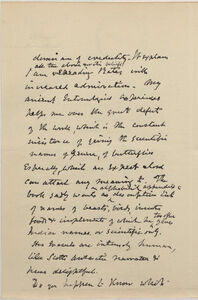 demise are of credulity. It explains
all the above on the whole
I am rereading Bates with
increased admiration. My
ancient Entomological experience
helps me over the great defect
of the work which is the constant
insistence of giving the scientific
names of genera, of butterflies
especially which no expert alone
can attach any meaning to. The
book sadly wants an alphabetical appendix
descriptive list
of names of beasts, birds, insects
foods & implements of which he gives
too often
Indian names or scientific only.
His travels are intensely human,
like Scotts Antarctic narrative &
hence delightful.
Do you happen to know which